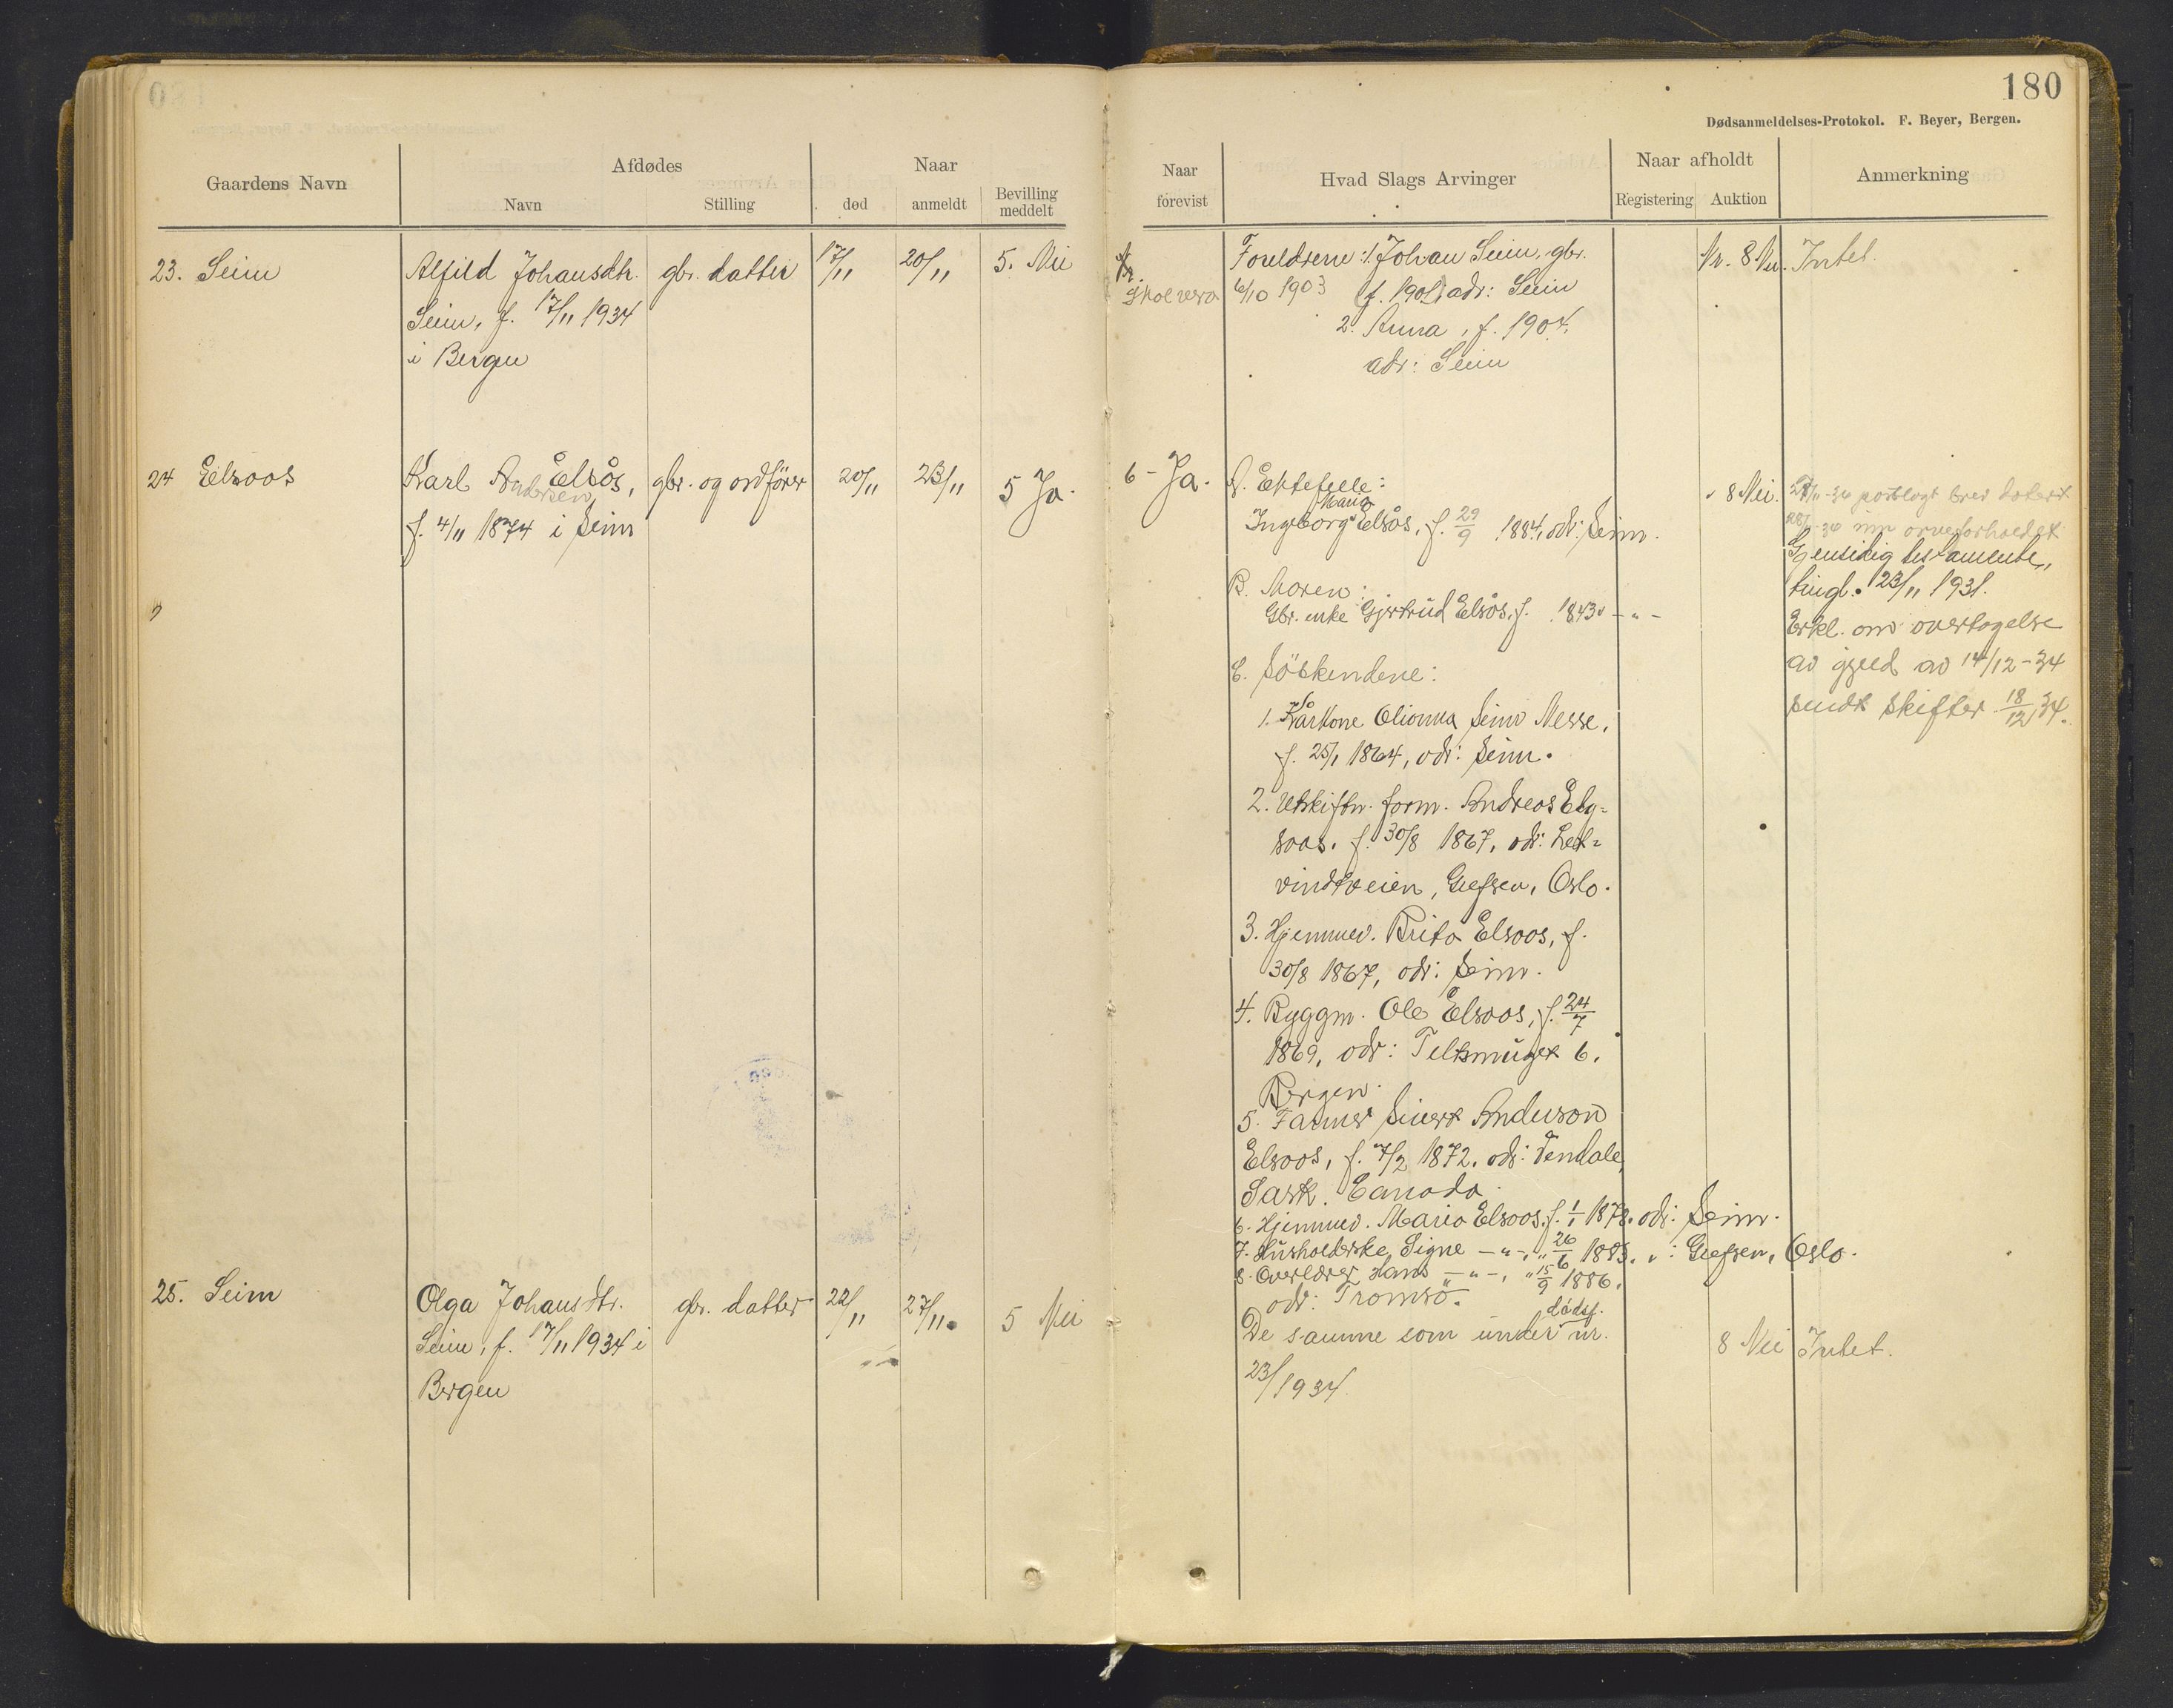 180
Dødsanmeldelses-Protokol. F. Beyer, Bergen.
Gaardens Navn
Afdødes
Navn
Stilling
Naar
død
anmeldt
Bevilling meddelt
Naar forevist
Hvad Slags Arvinger
Naar afholdt
Registering
Auktion
Anmerkning
23. Seim
Alfild Johansdtr.
Seim, f. 17/11 1934
i Bergen
gbr. datter
17/11
20/11
5. Nei
Foreldrene: 1. Johan Seim, gbr.
6/10 1903 f. 1901 adr: Seim
2. Anna, f. 1904.
adr: Seim
8 Nei.
Intet.
24 Elsaas
Karl Andersen Elsås,
f. 4/11 1874 i Seim
gbr. og ordfører
20/11
23/11
5 Ja.
6 - Ja.
A. Ektefelle:
Ingeborg Maria Elsås, f. 29/9 1884, adr: Seim.
B. Moren:
Gbr. enke Gjertrud Elsås, f. 1843 - " -
C. Söskendene:
1. Kårkone Olianna Seim Nesse,
f. 25/1 1864, adr: Seim.
2. Utskiftn. form. Andreas Elg-
saas. f. 30/8 1867, adr: Let-
vindtveien, Grefsen, Oslo.
3. Hjemmev. Brita Elsaas, f.
30/8 1867, adr: Seim.
4. Byggm. Ole Elsaas, f. 24/7
1869, adr: Teltsmuget 6.
Bergen.
5. Farmer Sivert Anderson
Elsaas, f. 7/2 1872. adr: Tendale,
Sask. Canada.
6. Hjemmev. Maria Elsaas, f. 1/1 1878. adr: Seim.
7. Husholderske Signe - " -, " 26/6 1883. " : Grefsen, Oslo.
8. Overlærer Hans - " -, " 15/9 1886.
adr: Tromsö.
8 Nei.
Gjensidig testamente,
tingl. 23/11 1931.
Erkl. om overtagelse
av gjeld av 14/12-34
sendt skifter. 18/12 34.
25. Seim
Olga Johansdtr.
Seim, f. 17/11 1934 i
Bergen
gbr. datter
22/11
27/11.
5 Nei
De samme som under dödsf. nr.
23/1934.
8 Nei
Intet.